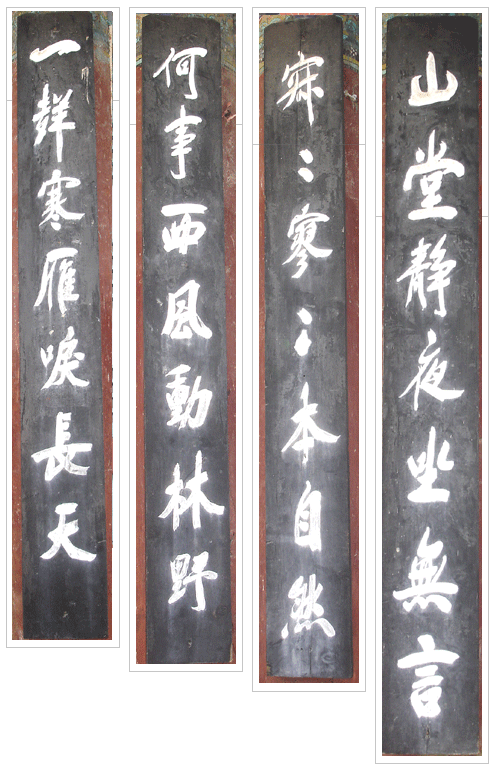 山堂静夜坐無言
寂〻寥〻本自然
何事西風動林野
一聲寒雁唳長天